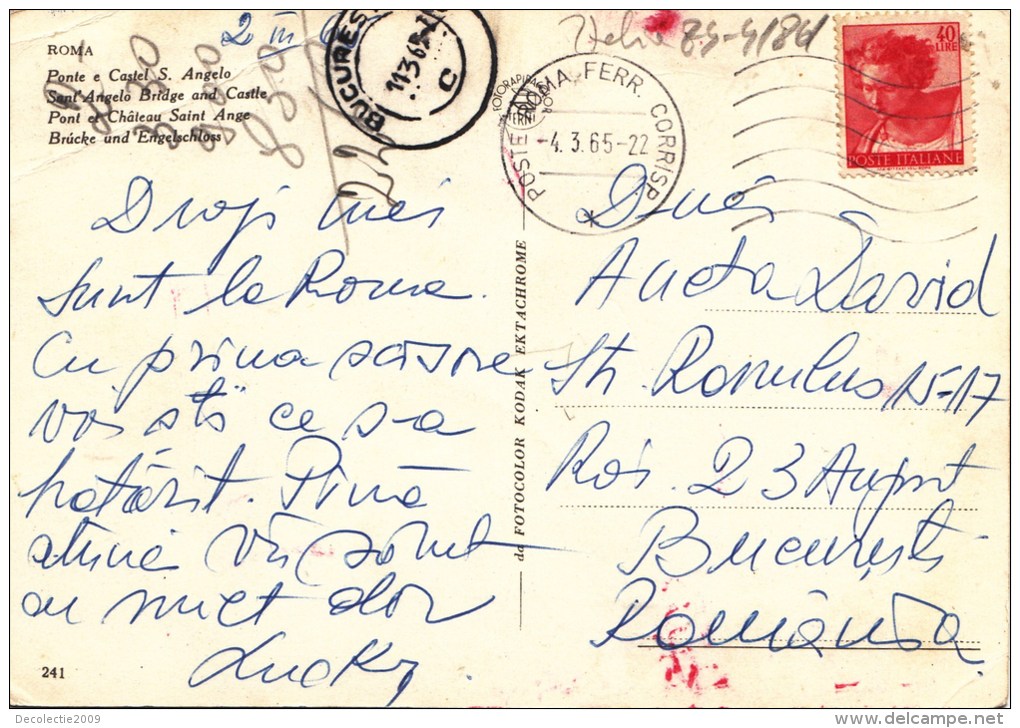 ROMA
Ponte e Castel S. Angelo
Sant'Angelo Bridge and Castle
Pont et Château Saint Ange
Brücke und Engelschloss
2 III 65
BUCUREȘ
11 3 65
C
22
POSTE ROMA FERR. CORRISP
-4.3.65-22
40
LIRE
POSTE ITALIANE
Dragi mei
Sunt la Roma.
Cu prima scrisore
voi ști ce s-a
hotărît. Pînă
atunci vă sărut
cu mult dor
Lucky
241
da FOTOCOLOR KODAK EKTACHROME
D-nei
Aneta David
Str. Romulus 15-17
Rai. 23 August
București
România
Decolectie2009
delcampe.net